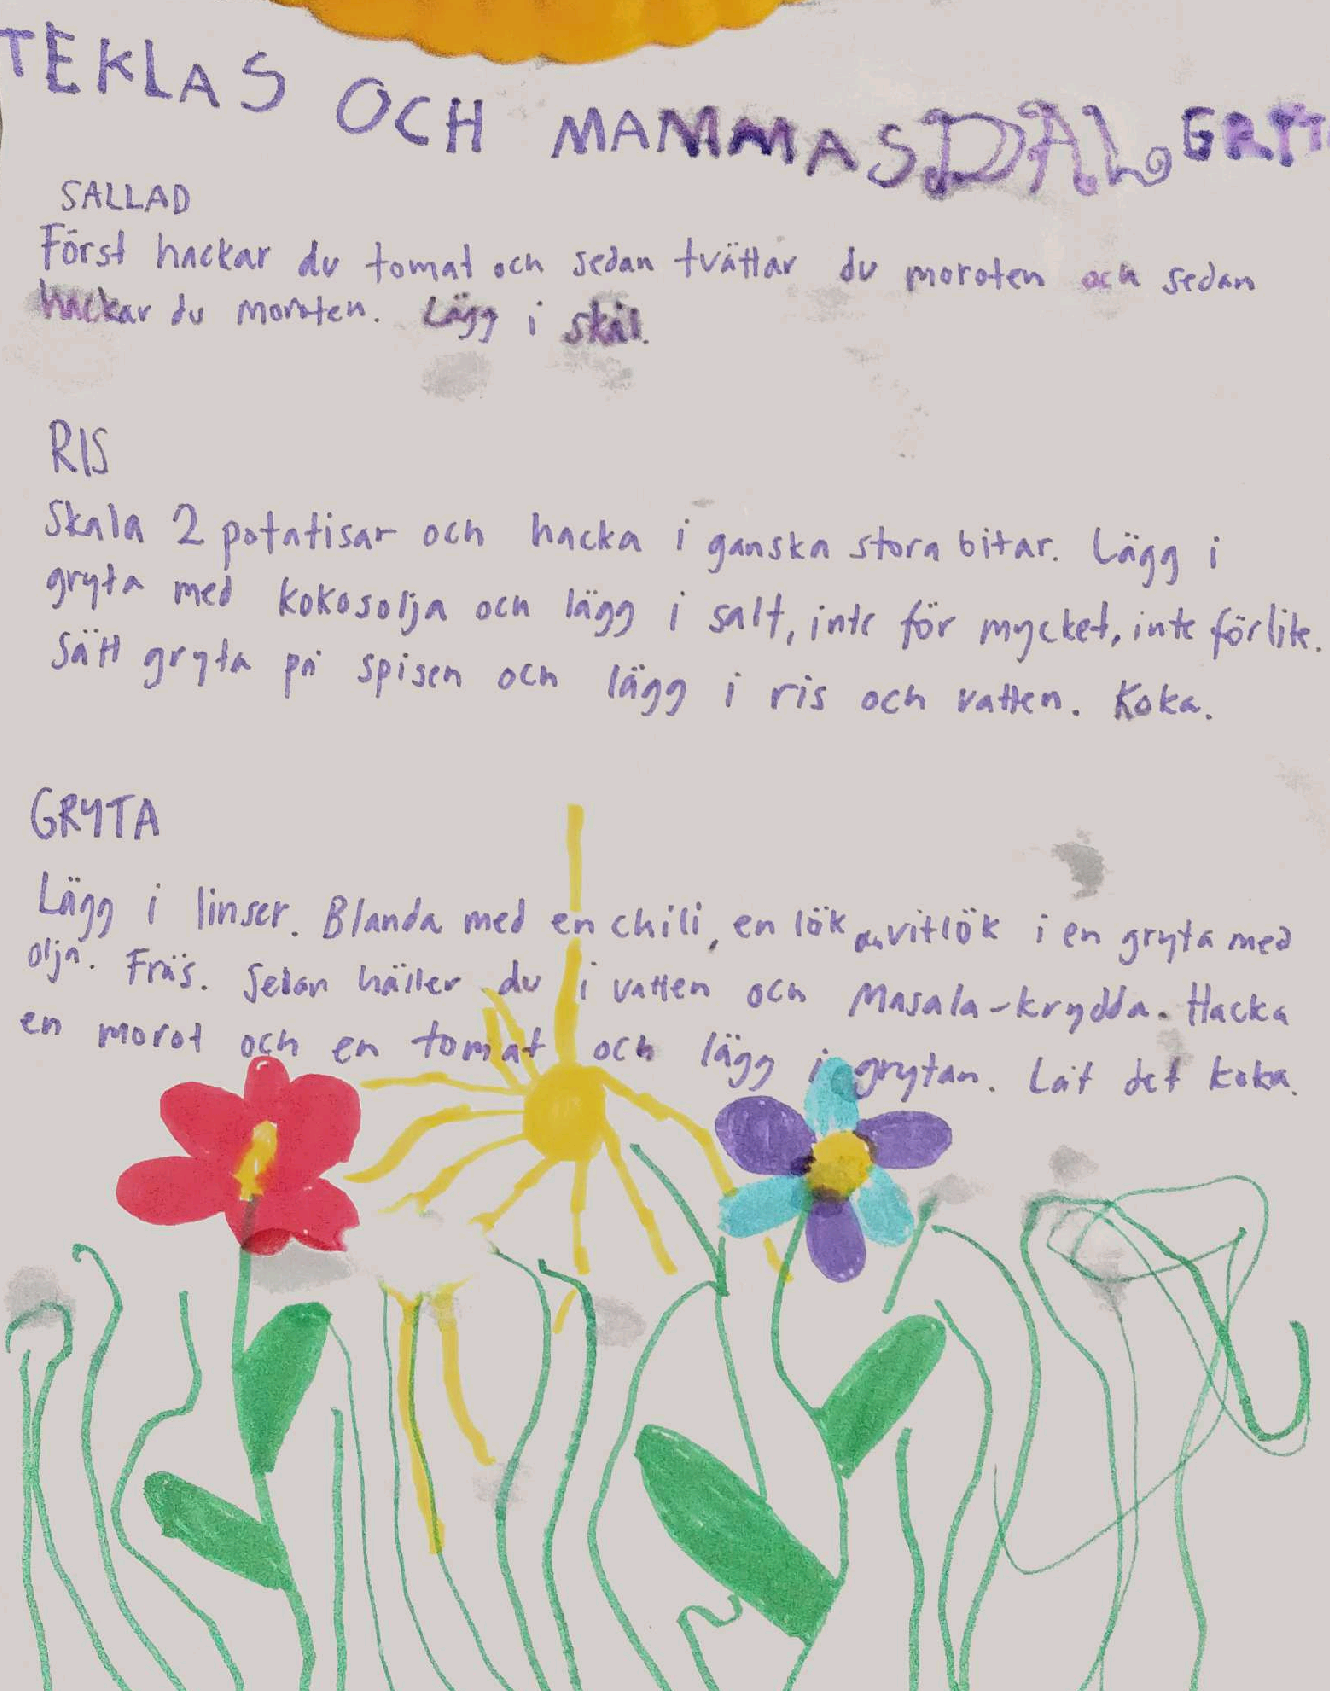 TEKLAS OCH MAMMAS DAL GRYT
SALLAD
Först hackar du tomat och sedan tvättar du moroten och sedan
hackar du moroten. Lägg i skål.
RIS
Skala 2 potatisar och hacka i ganska stora bitar. Lägg i
gryta med kokosolja och lägg i salt, inte för mycket, inte för lite.
Sätt gryta på spisen och lägg i ris och vatten. Koka.
GRYTA
Lägg i linser. Blanda med en chili, en lök en vitlök i en gryta med
olja. Fräs. Sedan häller du i vatten och Masala-krydda. Hacka
en morot och en tomat och lägg i grytan. Låt det koka.